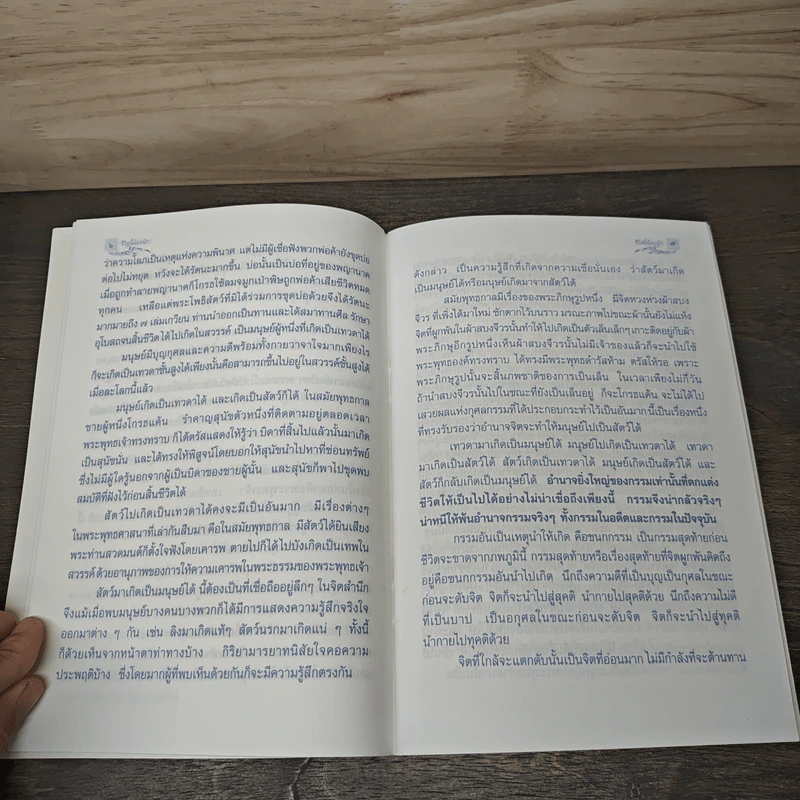 ๖ ชีวิตนี้น้อยนัก
ว่าความโลภเป็นเหตุแห่งความพินาศ แต่ไม่มีผู้เชื่อฟังพวกพ่อค้ายังขุดบ่อ
ต่อไปไม่หยุด หวังจะได้รัตนะมากขึ้น บ่อนั้นเป็นบ่อที่อยู่ของพญานาค
เมื่อถูกทำลายพญานาคก็โกรธใช้ลมจมูกเป่าพิษถูกพ่อค้าเสียชีวิตหมด
ทุกคน เหลือแต่พระโพธิสัตว์ที่มิได้ร่วมการขุดบ่อด้วยจึงได้รัตนะ
มากมายถึง ๗ เล่มเกวียน ท่านนำออกเป็นทานและได้สมาทานศีล รักษา
อุโบสถจนสิ้นชีวิตได้ไปเกิดในสวรรค์ เป็นมนุษย์ผู้หนึ่งที่เกิดเป็นเทวดาได้
มนุษย์มีบุญกุศลและความดีพร้อมทั้งกายวาจาใจมากเพียงไร
ก็จะเกิดเป็นเทวดาชั้นสูงได้เพียงนั้นคือสามารถขึ้นไปอยู่ในสวรรค์ชั้นสูงได้
เมื่อละโลกนี้แล้ว
มนุษย์เกิดเป็นเทวดาได้ และเกิดเป็นสัตว์ก็ได้ ในสมัยพุทธกาล
ชายผู้หนึ่งโกรธแค้น รำคาญสุนัขตัวหนึ่งที่ติดตามอยู่ตลอดเวลา
พระพุทธเจ้าทรงทราบ ก็ได้ตรัสแสดงให้รู้ว่า บิดาที่สิ้นไปแล้วนั้นมาเกิด
เป็นสุนัขนั้น และได้ทรงให้พิสูจน์โดยบอกให้สุนัขนำไปหาที่ซ่อนทรัพย์
ซึ่งไม่มีผู้ใดรู้นอกจากผู้เป็นบิดาของชายผู้นั้น และสุนัขก็พาไปขุดพบ
สมบัติที่ฝังไว้ก่อนสิ้นชีวิตได้
สัตว์ไปเกิดเป็นเทวดาได้คงจะมีเป็นอันมาก มีเรื่องต่างๆ
ในพระพุทธศาสนาที่เล่ากันสืบมา คือในสมัยพุทธกาล มีสัตว์ได้ยินเสียง
พระท่านสวดมนต์ก็ตั้งใจฟังโดยเคารพ ตายไปก็ได้ไปบังเกิดเป็นเทพใน
สวรรค์ ด้วยอานุภาพของการให้ความเคารพในพระธรรมของพระพุทธเจ้า
สัตว์มาเกิดเป็นมนุษย์ได้ นี้ต้องเป็นที่เชื่อถืออยู่ลึกๆ ในจิตสำนึก
จึงแม้เมื่อพบมนุษย์บางคนบางพวกก็ได้มีการแสดงความรู้สึกจริงใจ
ออกมาต่าง ๆ กัน เช่น ลิงมาเกิดแท้ๆ สัตว์นรกมาเกิดแน่ ๆ ทั้งนี้
ก็ด้วยเห็นจากหน้าตาท่าทางบ้าง กิริยามารยาทนิสัยใจคอความ
ประพฤติบ้าง ซึ่งโดยมากผู้ที่พบเห็นด้วยกันก็จะมีความรู้สึกตรงกัน
ชีวิตนี้น้อยนัก ๗
ดังกล่าว เป็นความรู้สึกที่เกิดจากความเชื่อนั่นเอง ว่าสัตว์มาเกิด
เป็นมนุษย์ได้หรือมนุษย์เกิดมาจากสัตว์ได้
สมัยพุทธกาลมีเรื่องของพระภิกษุรูปหนึ่ง มีจิตหวงห่วงผ้าสบง
จีวร ที่เพิ่งได้มาใหม่ ซักตากไว้บนราว มรณะภาพไปขณะผ้านั้นยังไม่แห้ง
จิตที่ผูกพันในผ้าสบงจีวรนั้นทำให้ไปเกิดเป็นตัวเล็นเล็กๆ เกาะติดอยู่กับผ้า
พระภิกษุอีกรูปหนึ่งเห็นผ้าสบงจีวรนั้นไม่มีเจ้าของแล้วก็จะนำไปใช้
พระพุทธองค์ทรงทราบ ได้ทรงมีพระพุทธดำรัสห้าม ตรัสให้รอ เพราะ
พระภิกษุรูปนั้นจะสิ้นภพชาติของการเป็นเล็น ในเวลาเพียงไม่กี่วัน
ถ้านำสบงจีวรนั้นไปในขณะที่ยังเป็นเล็นอยู่ ก็จะโกรธแค้น จะไม่ได้ไป
เสวยผลแห่งกุศลกรรมที่ได้ประกอบกระทำไว้เป็นอันมากนี้เป็นเรื่องหนึ่ง
ที่ทรงรับรองว่าอำนาจจิตจะทำให้มนุษย์ไปเป็นสัตว์ได้
เทวดามาเกิดเป็นมนุษย์ได้ มนุษย์ไปเกิดเป็นเทวดาได้ เทวดา
มาเกิดเป็นสัตว์ได้ สัตว์เกิดเป็นเทวดาได้ มนุษย์เกิดเป็นสัตว์ได้ และ
สัตว์ก็กลับเกิดเป็นมนุษย์ได้ อำนาจยิ่งใหญ่ของกรรมเท่านั้นที่ตกแต่ง
ชีวิตให้เป็นไปได้อย่างไม่น่าเชื่อถึงเพียงนี้ กรรมจึงน่ากลัวจริงๆ
น่าหนีให้พ้นอำนาจกรรมจริงๆ ทั้งกรรมในอดีตและกรรมในปัจจุบัน
กรรมอันเป็นเหตุนำให้เกิด คือชนกกรรม เป็นกรรมสุดท้ายก่อน
ชีวิตจะขาดจากภพภูมินี้ กรรมสุดท้ายหรือเรื่องสุดท้ายที่จิตผูกพันคิดถึง
อยู่คือชนกกรรมอันนำไปเกิด นึกถึงความดีที่เป็นบุญเป็นกุศลในขณะ
ก่อนจะดับจิต จิตก็จะนำไปสู่สุคติ นำกายไปสู่สุคติด้วย นึกถึงความไม่ดี
ที่เป็นบาป เป็นอกุศลในขณะก่อนจะดับจิต จิตก็จะนำไปสู่ทุคติ
นำกายไปทุคติด้วย
จิตที่ใกล้จะแตกดับนั้นเป็นจิตที่อ่อนมาก ไม่มีกำลังที่จะต้านทาน